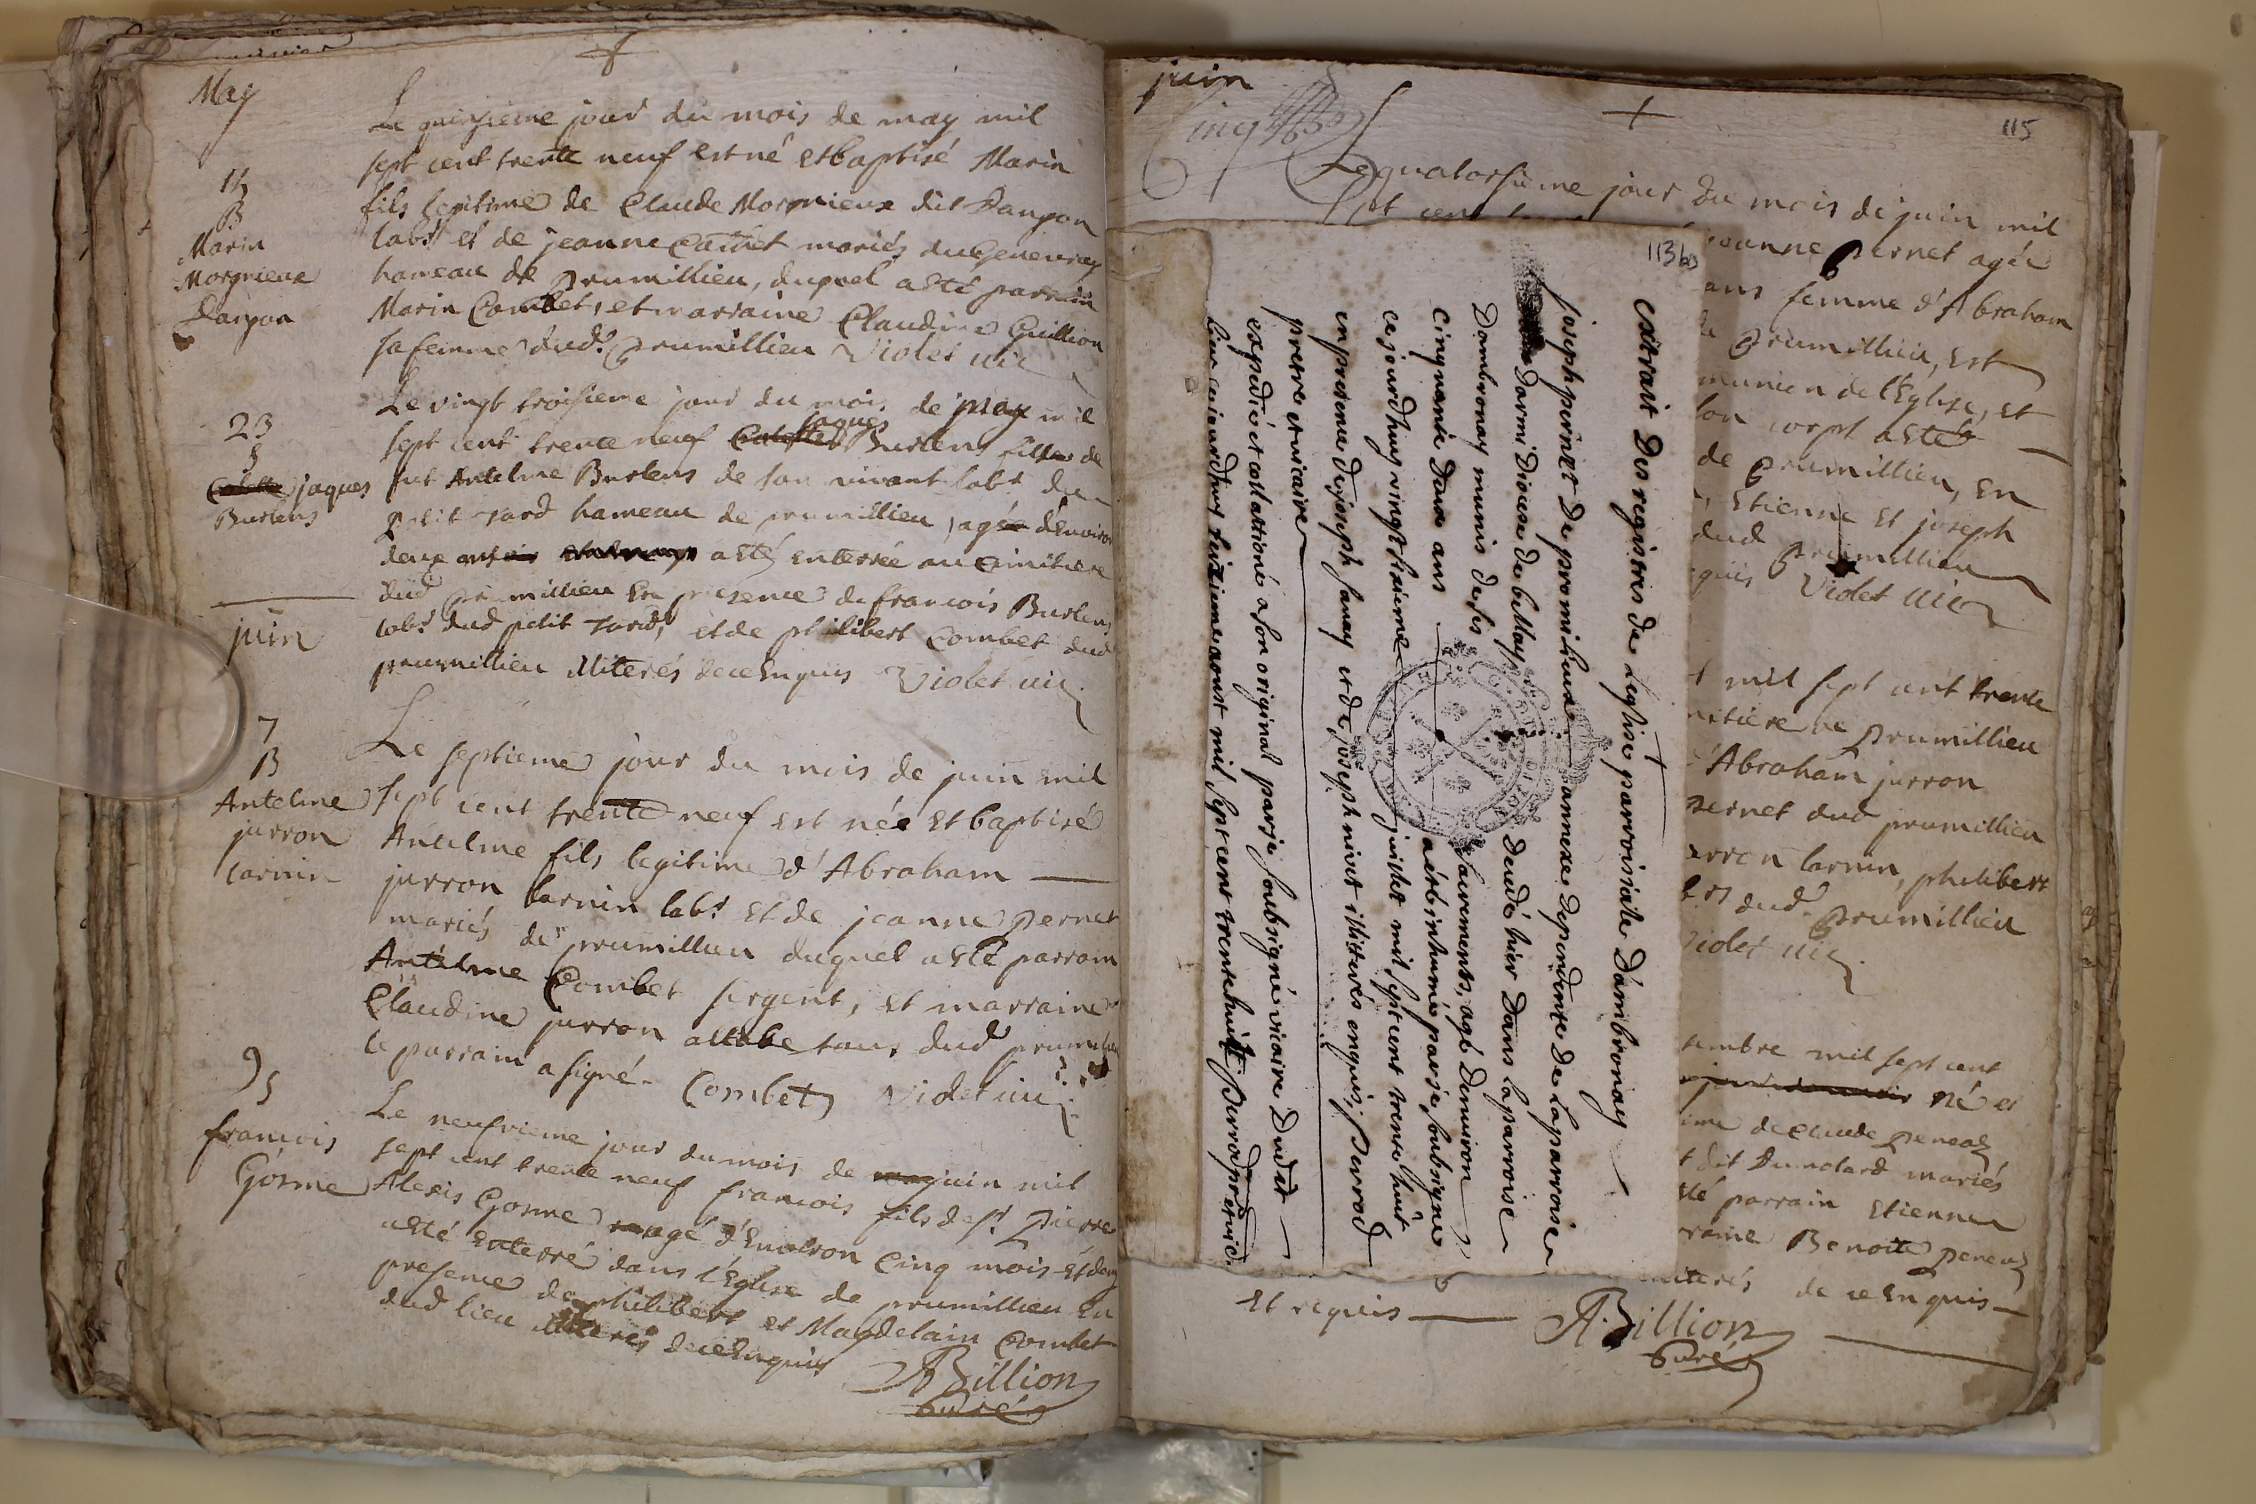 May
Le quinsieme jour du mois de may mil
sept cent trente neuf est né et baptisé Marin
fils legitime de Claude Morgnieux dit
labr et de jeanne mariés du Genevray
hameau de prumillieu, duquel a eté parrain
Marin Combet, et marraine Claudine Guillion
sa femme dud. prumillieu Violet vic
B
Marin
Morgnieux
23
Le vingt troisieme jour du mois de may mil
sept cent trente neuf jaques Burlens fils de
fut Antelme Burlens de son vivant labr du
petit hameau de prumillieu, agé d'environ
deux a eté enterrée au cimitiere
dud prumillieu en presence de francois Burlens
labr dud petit et de philibert Combet dud
prumillieu illiterés de ce enquis Violet vic.
jaques
Burlens
juin
7
B
Antelme
jurron
larnin
Le septieme jour du mois de juin mil
sept cent trente neuf est née et baptisé
Antelme fils legitime d'Abraham
jurron larnin labr et de jeanne pernet
mariés de prumillieu duquel a eté parrain
Antelme Combet sergent, et marraine
Claudine jurron tous dud prumillieu
le parrain a signé. Combet Violet vic
9
francois
Gosme
Le neufvieme jour du mois de juin mil
sept cent trente neuf francois fils de sr Pierre
Alexis Gosme agé d'environ cinq mois
eté enterré dans l'Eglise de prumillieu en
presence de philibert et Magdelain Combet
dud lieu illiterés de ce enquis
A Billion
Curé
juin
115
Le quatorsieme jour du mois de juin mil
jeanne pernet agée
ans femme d'Abraham
prumillieu, est
munion de l'Eglise, et
son corps a eté
de prumillieu, en
Etienne et joseph
dud prumillieu
Violet vic
mil sept cent trente
cimitiere de prumillieu
Abraham jurron
pernet dud prumillieu
jurron larnin, philibert
dud. prumillieu
Violet vic.
mil sept cent
né et
de Claude
dit mariés
eté parrain Etienne
Benoite
illiterés de ce enquis
et requis A. Billion
Curé
113 bis
extrait des registres de l'eglise parroissiale d'ambronay
joseph pernet de promilieux annexe dependente de la parroisse
darmi diocese de bellay, decedé hier dans la parroisse
dambronay munis de ses sacrements, agé denviron
cinquante deux ans a eté inhumé par je soubsigne
cejourdhuy vingt juillet mil sept cent trente huit
en presence de joseph et de joseph nivet illiterés enquis, perrod
pretre et vicaire
expedié et collationé a son original par je soubsigné vicaire dudit
lieu cejourdhuy aoust mil sept cent trente huit perrod pre vic.